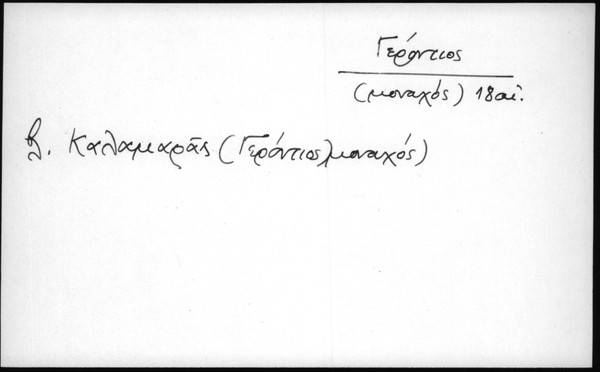 Γερόντιος
(μοναχός) 18 αἰ.
βλ. Καλαμαρᾶς (Γερόντιος, μοναχός)